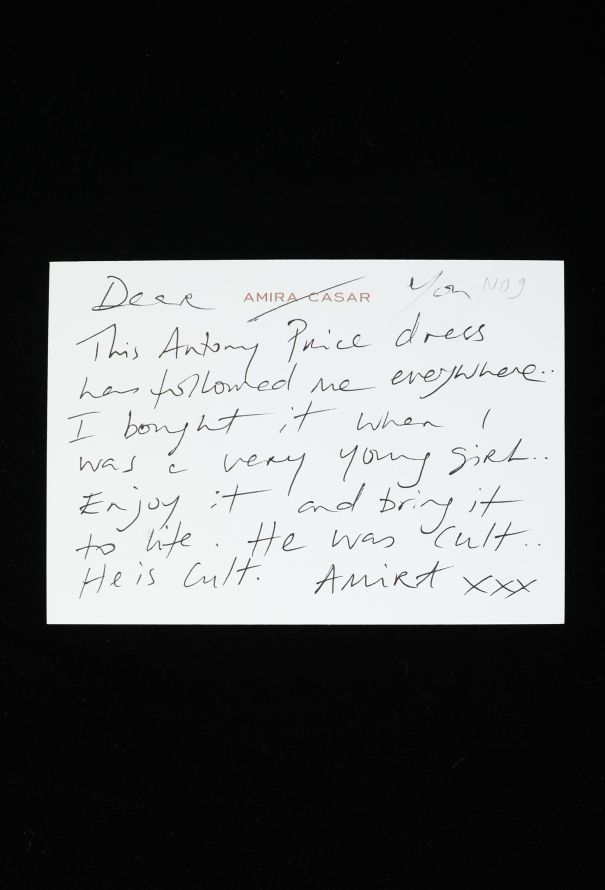 Dear AMIRA CASAR You NO9
This Antony Price dress
has followed me everywhere..
I bought it when I
was a very young girl..
Enjoy it and bring it
to life. He was Cult..
He is Cult. AMIRA xxx